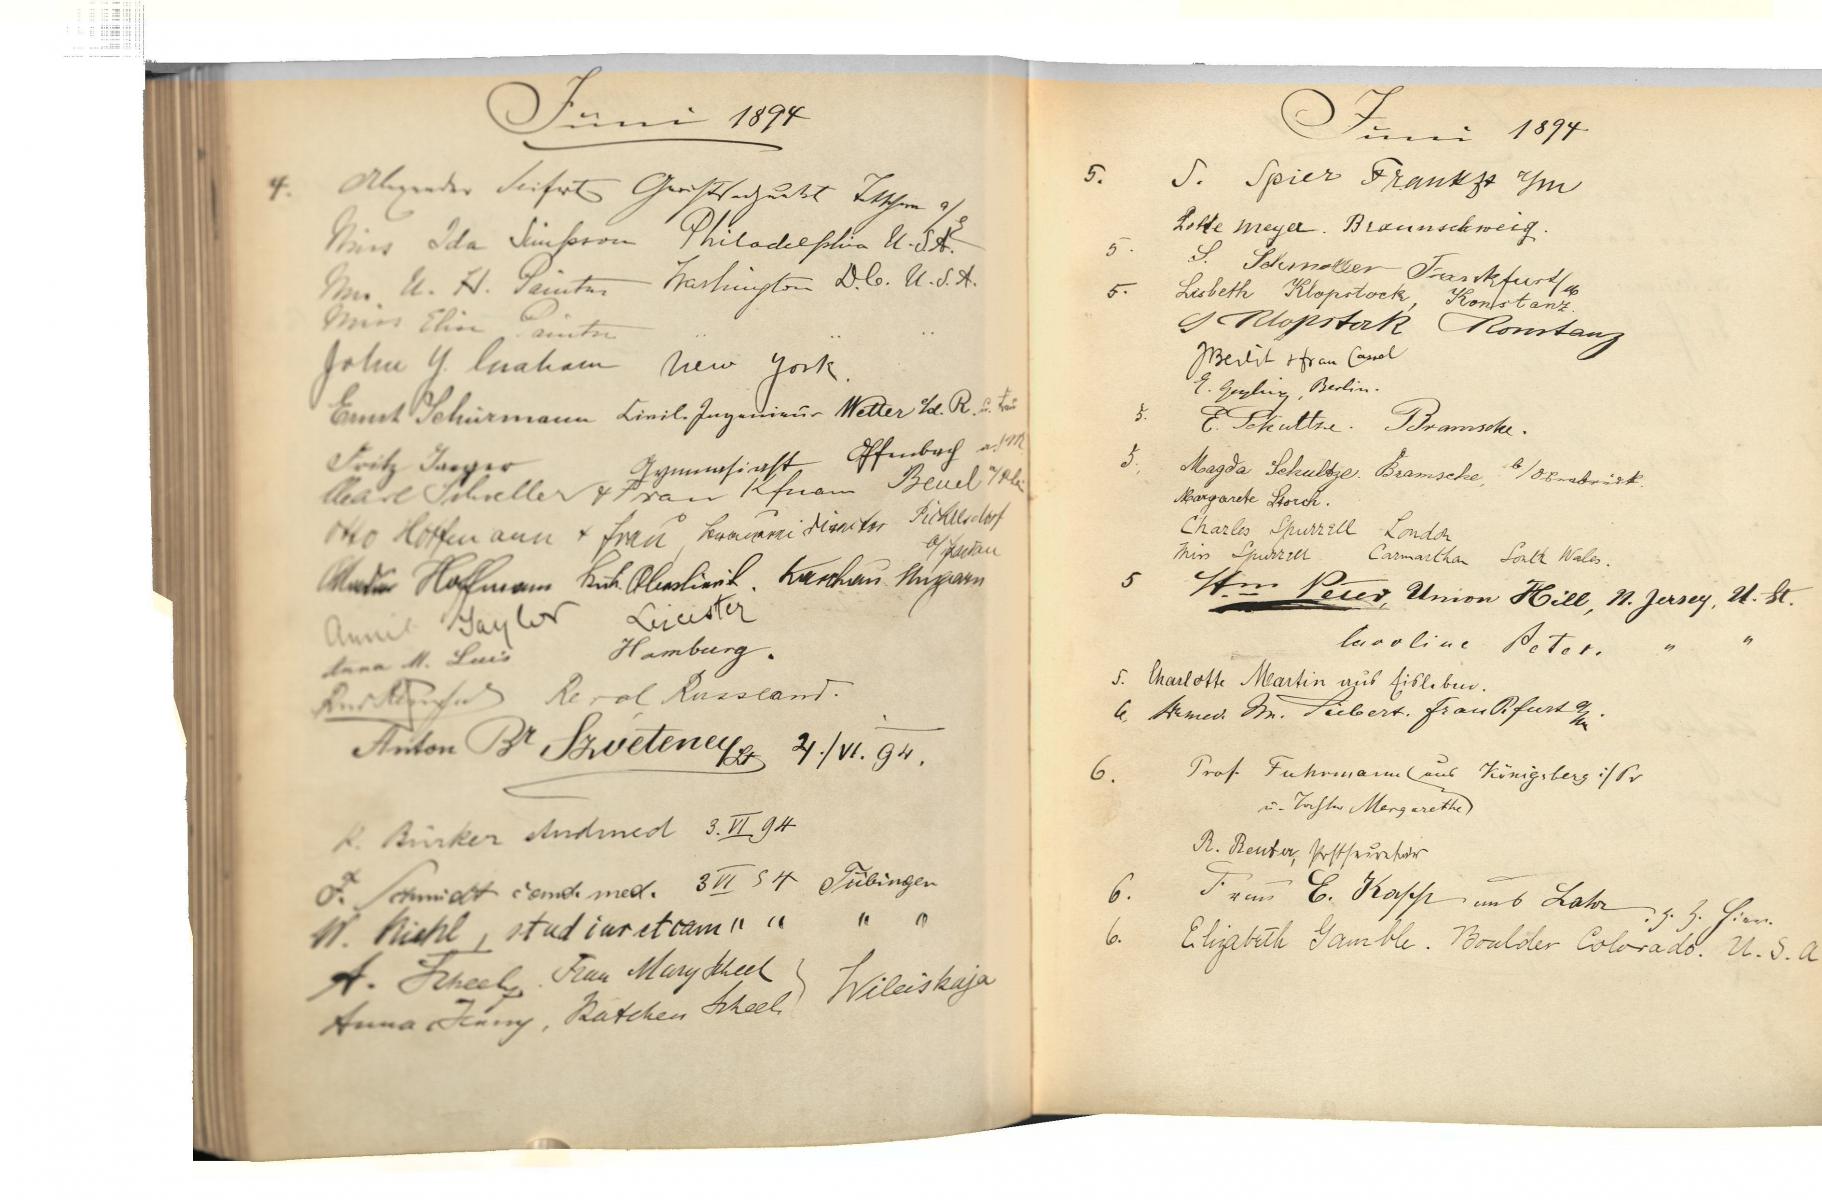 Juni 1894
4. Alexander Seifert Tetschen a/E
Miss Ida Simpson Philadelphia U.S.A.
Mrs. U. H. Painter Washington D.C. U.S.A.
Miss Elise Painter " "
John Y. Graham New York.
Ernst Schürmann Civil-Ingenieur Wetter a/d. R. u. Frau
Fritz Jaeger Gymnasiast Offenbach a/M
Carl Scheller & Frau Beuel a/Rhein
Otto Hoffmann & Frau, Director
Hoffmann Kaschau Ungarn
Annie Taylor Leicester
Anna M. Luis Hamburg.
Reval Russland.
Anton Br Szveteney Lt 2./VI. 94.
K. Bürker cand med 3. VI 94
F. Schmidt cand. med. 3 VI 94 Tübingen
W. Kiehl, stud iur et cam " " " "
A. Scheel, Frau Mary Scheel
Anna Jenny, Kätchen Scheel Wileiskaja
Juni 1894
5. S. Spier Frankft a/m
Lotte Meyer. Braunschweig.
5. S. Schmoller Frankfurt a/M
5. Lisbeth Klopstock, Konstanz.
S Klopstock Konstanz
& Frau Cassel
E. Berlin.
5. E. Schultze. Bramsche.
5. Magda Schultze. Bramsche, b/Osnabrück.
Margarete Storch.
Charles Spurrell London
Miss Spurrell Carmarthan South Wales.
5 Wm Peter, Union Hill, N. Jersey, U. St.
Caroline Peter. " "
5. Charlotte Martin aus Eisleben.
6. Dr. med. Siebert. Frankfurt a/M.
6. Prof. Fuhrmann aus Königsberg i/Pr
u. Tochter Margarethe
R. Reuter, Postsecretär
6. Frau E. Kapp aus Lahr, z. Z. hier.
6. Elizabeth Gamble. Boulder Colorado. U.S.A